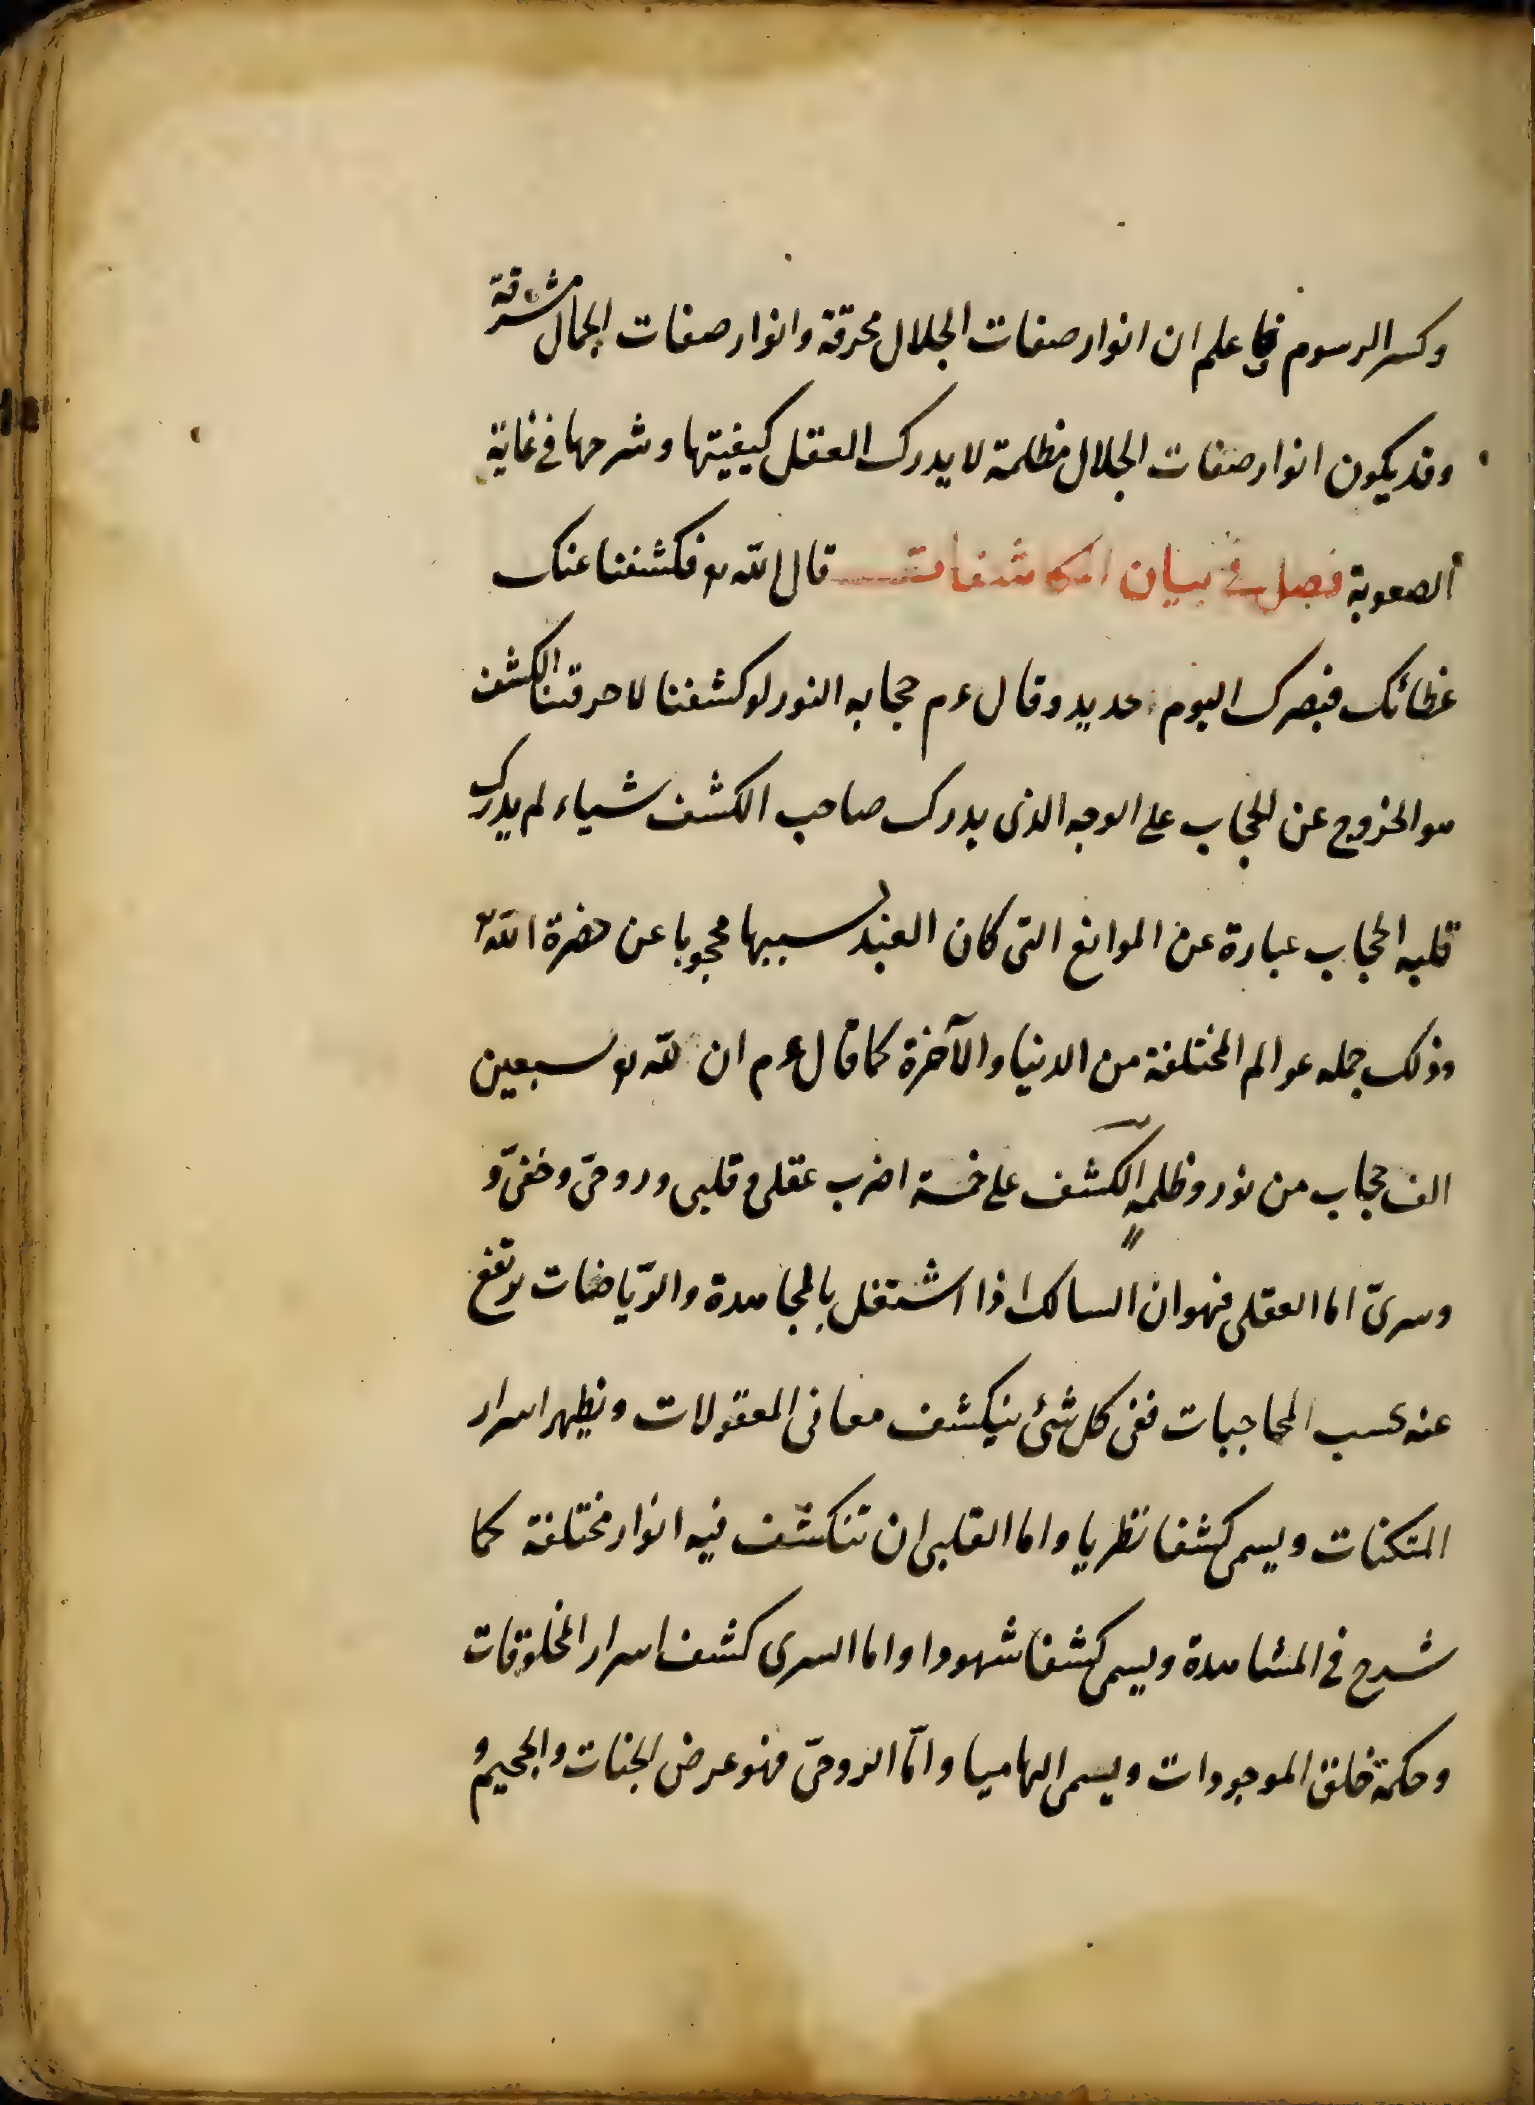 وكسر الرسوم فاعلم ان انوار صفات الجلال محرقة وانوار صفات الجمال مشرقة
وقد يكون انوار صفات الجلال مظلمة لا يدرك العقل كيفيتها وشرحها فى غاية
الصعوبة فصل فى بيان المكاشفات قال الله تع فكشفنا عنك
غطائك فبصرك اليوم حديد وقال عم حجابه النور لو كشفنا لاحرقتنا الكشف
هو الخروج عن الحجاب على الوجه الذى يدرك صاحب الكشف شياء لم يدرك
قلبه الحجاب عبارة عن الموانع التى كان العبد بسببها محجوبا عن حضرة الله تع
وذلك جمله عوالم المختلفة من الدنيا والآخرة كما قال عم ان لله تع سبعين
الف حجاب من نور وظلمةٍ الكشف على خمسة اضرب عقلى وقلبى وروحىّ وخفىّ و
وسرىّ اما العقلى فهو ان السالك اذا اشتغل بالمجاهدة والرّياضات يرتفع
عنه بحسب المحاجبات ففى كل شئ ينكشف معانى المعقولات ويظهر اسرار
المتكنات ويسمى كشفا نظريا واما القلبى ان تنكشف فيه انوار مختلفة كما
شرح فى المشاهدة ويسمى كشفا شهودا واما السرى كشف اسرار المخلوقات
وحكمة خلق الموجودات ويسمى الهاميا وامّا الروحىّ فهو عرض الجنات والجحيم و